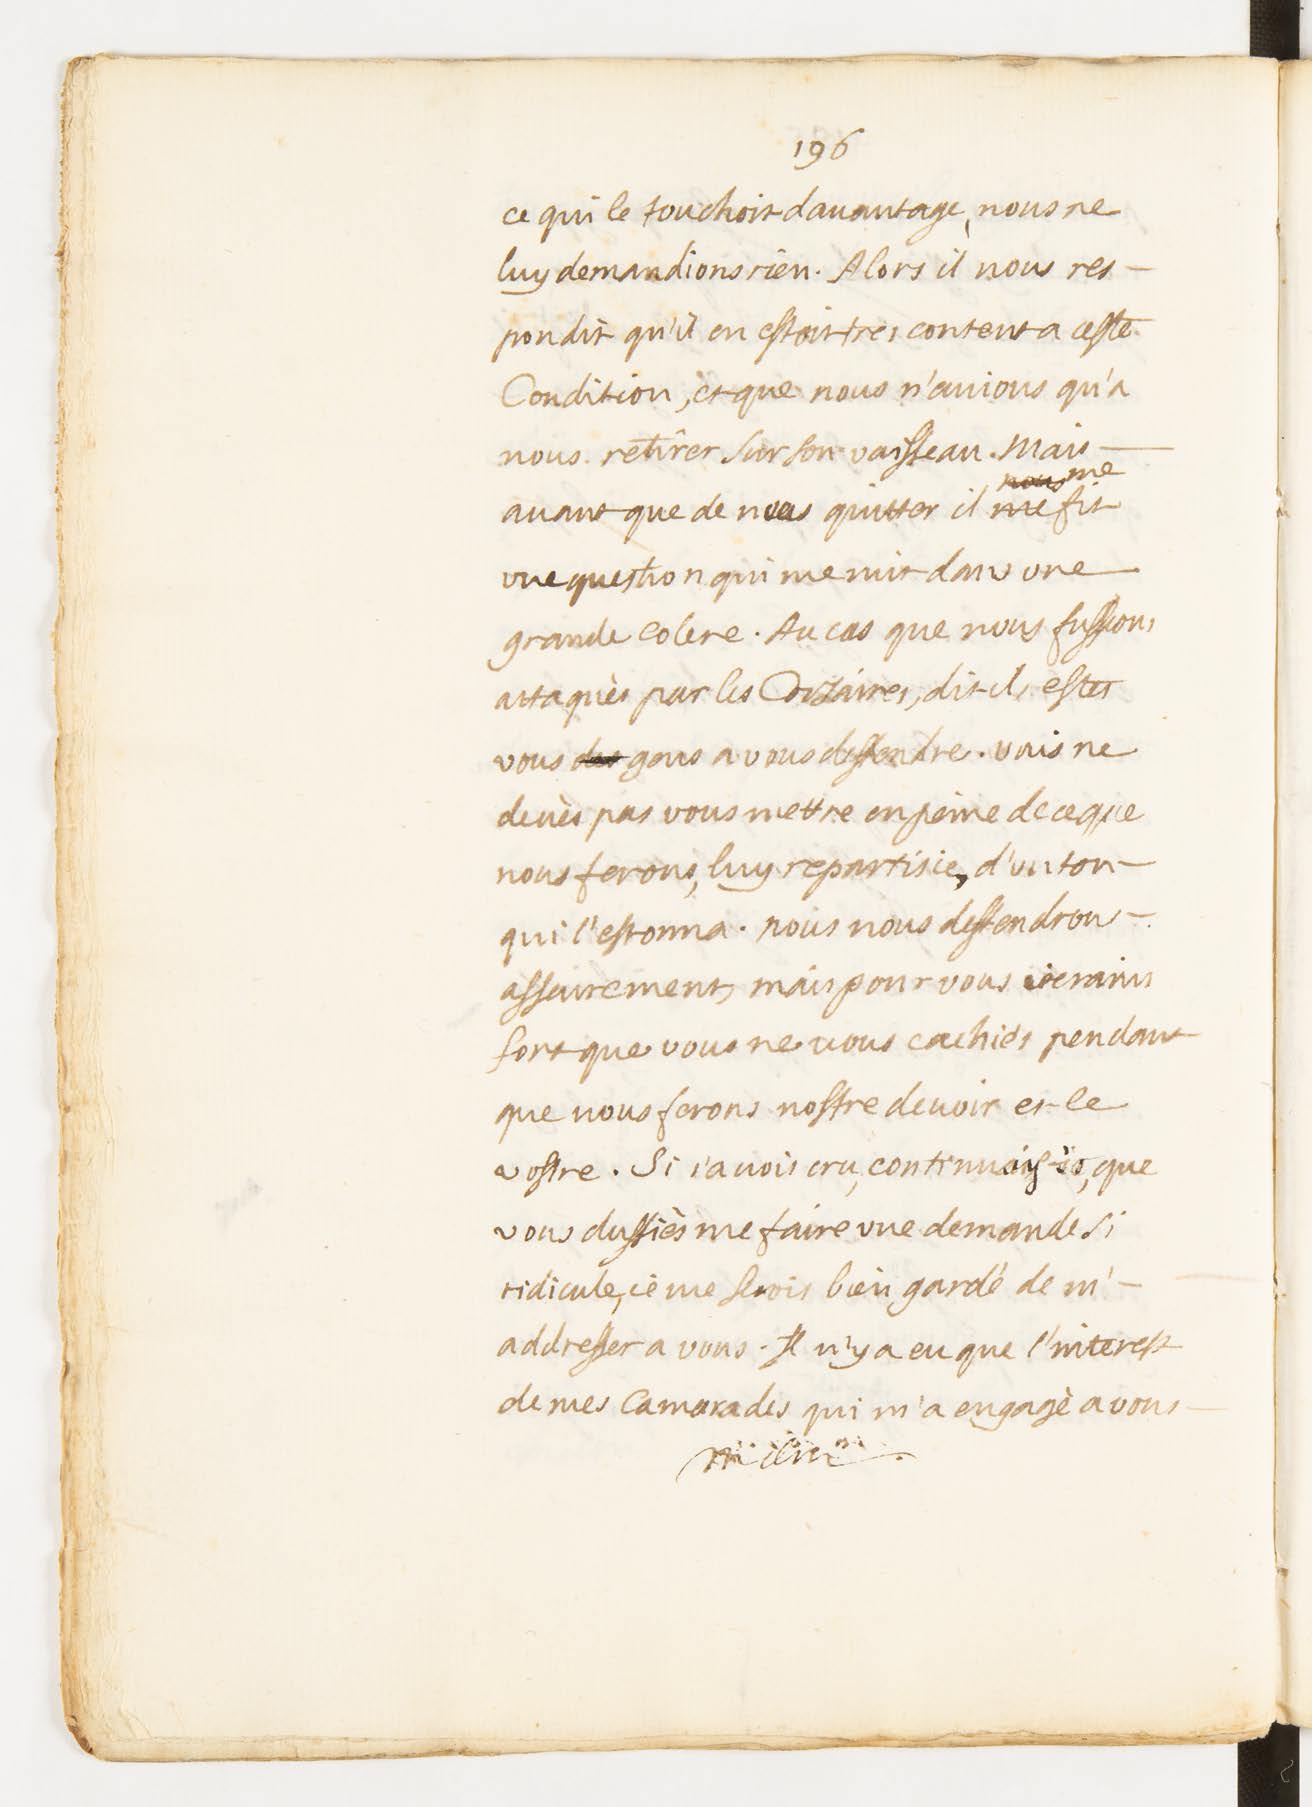 196
ce qui le touchoit dauantage, nous ne
luy demandions rien. Alors il nous res-
pondit qu'il en estoit tres content a ceste
Condition, et que nous n'auions qu'a
nous retirer sur son vaisseau. Mais
nous me
auant que de nous quitter il me fit
vne question qui me mit dans vne
grande colere. Au cas que nous fussions
attaqués par les Corsaires, dit-il, estes
vous des gens a vous deffendre. vous ne
deuès pas vous mettre en peine de ce que
nous ferons, luy repartis ie, d'un ton
qui l'estonna. nous nous deffendrons
asseurement, mais pour vous ie crains
fort que vous ne vous cachiés pendant
que nous ferons nostre deuoir et le
vostre. Si i'auois cru, continuais-ie, que
vous dussiès me faire vne demande si
ridicule, ie me serois bien gardé de m'-
addresser a vous. Il n'y a eu que l'interest
de mes Camarades qui m'a engagè a vous